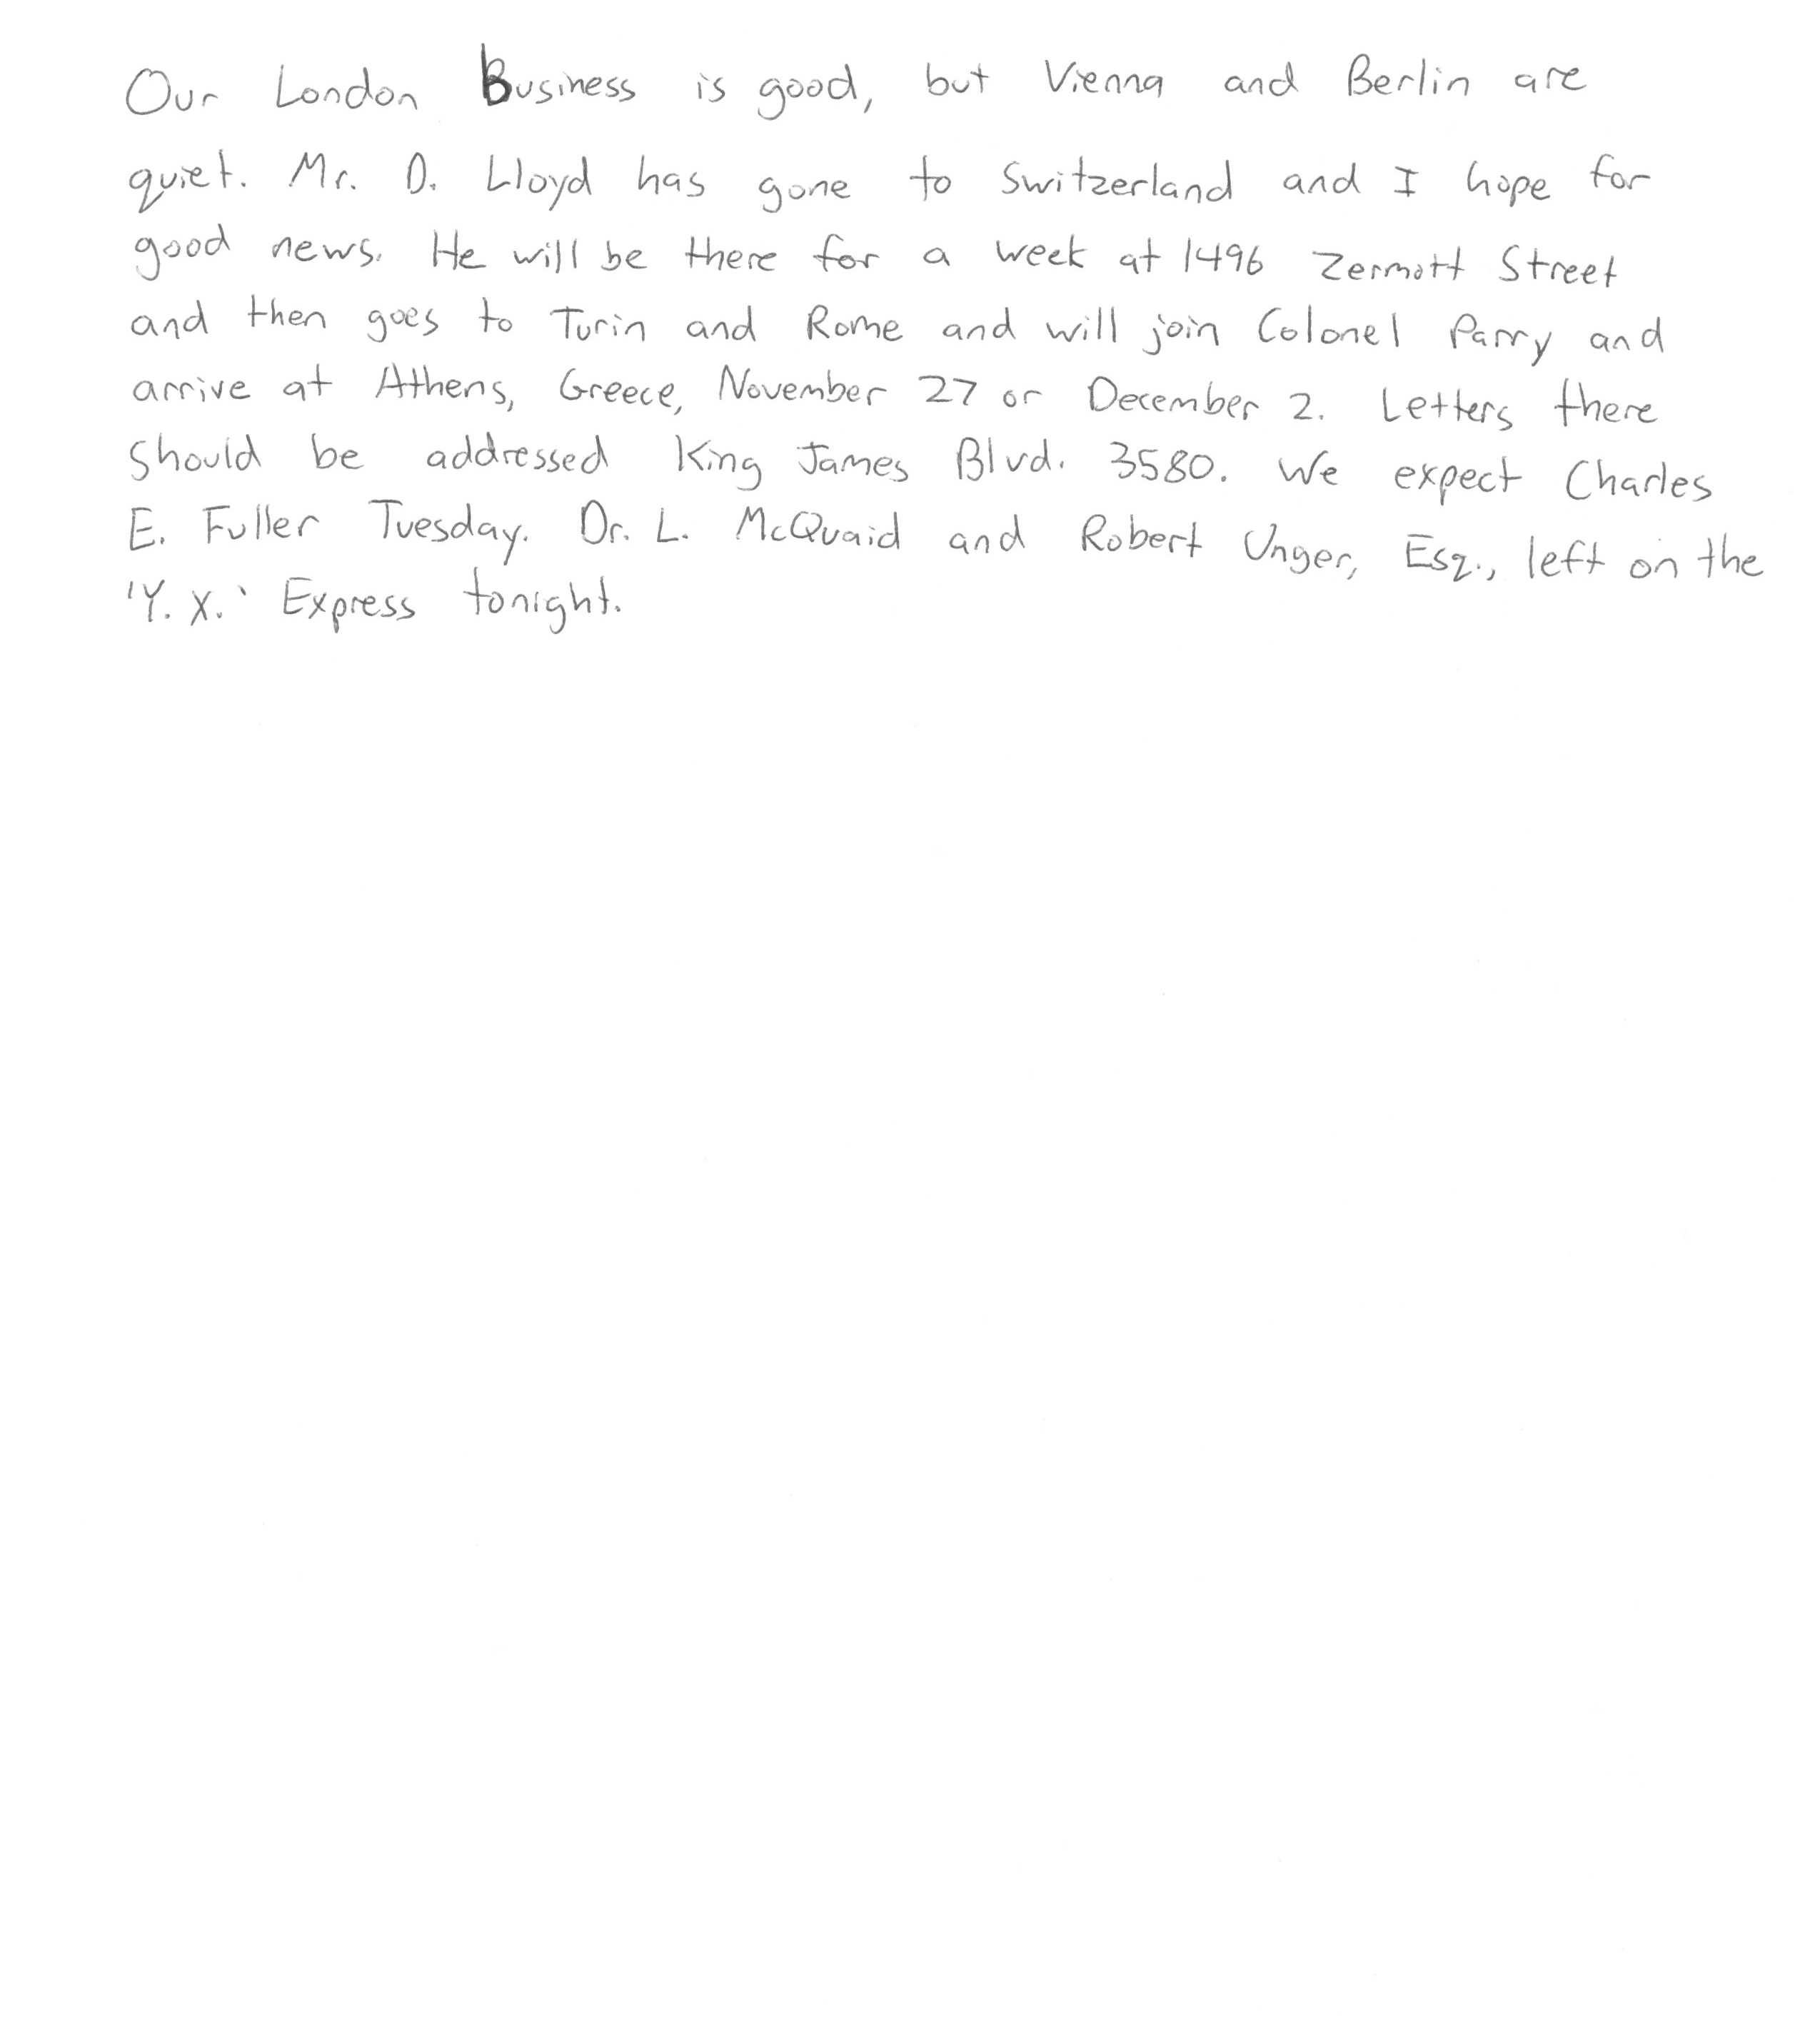 Our London Business is good, but Vienna and Berlin are
quiet. Mr. D. Lloyd has gone to Switzerland and I hope for
good news. He will be there for a week at 1496 Zermott Street
and then goes to Turin and Rome and will join Colonel Parry and
arrive at Athens, Greece, November 27 or December 2. Letters there
should be addressed King James Blvd. 3580. We expect Charles
E. Fuller Tuesday. Dr. L. McQuaid and Robert Unger, Esq., left on the
'Y. X.' Express tonight.